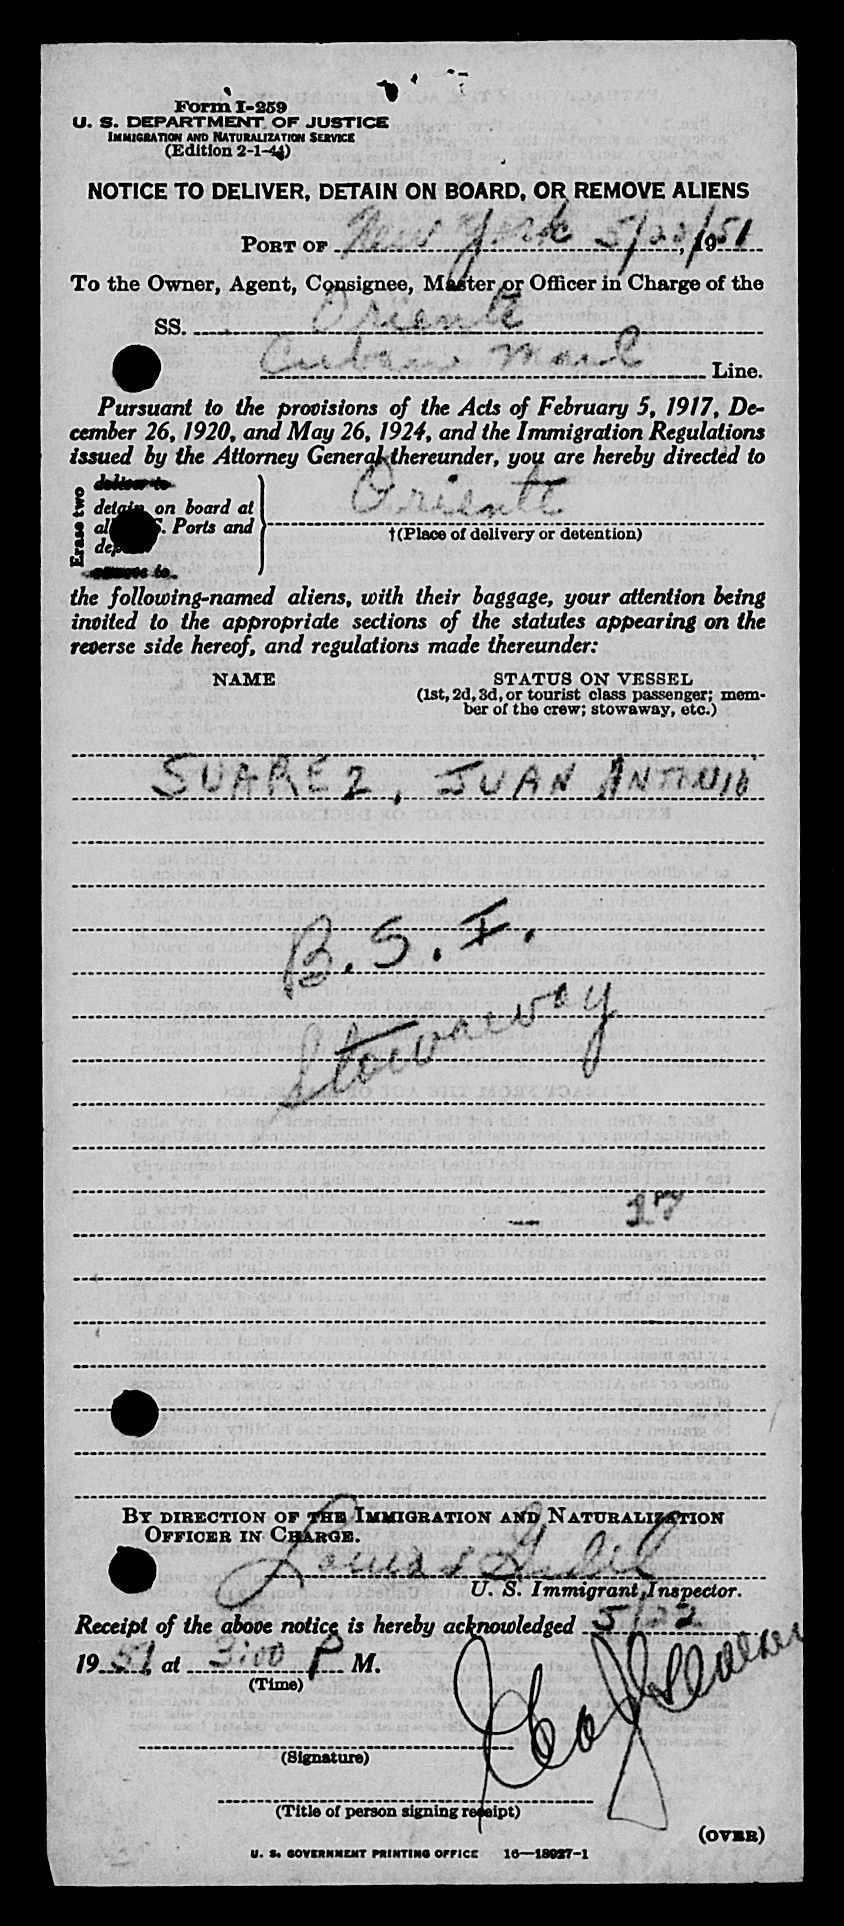 Form I-259
U. S. DEPARTMENT OF JUSTICE
IMMIGRATION AND NATURALIZATION SERVICE
(Edition 2-1-44)
NOTICE TO DELIVER, DETAIN ON BOARD, OR REMOVE ALIENS
PORT OF New York 5/22/, 1951
To the Owner, Agent, Consignee, Master or Officer in Charge of the
SS. Oriente
Cuban Mail Line.
Pursuant to the provisions of the Acts of February 5, 1917, De-
cember 26, 1920, and May 26, 1924, and the Immigration Regulations
issued by the Attorney General thereunder, you are hereby directed to
Erase two
deliver to
detain on board at
all U. S. Ports and Oriente
†(Place of delivery or detention)
remove to
the following-named aliens, with their baggage, your attention being
invited to the appropriate sections of the statutes appearing on the
reverse side hereof, and regulations made thereunder:
NAME STATUS ON VESSEL
(1st, 2d, 3d, or tourist class passenger; mem-
ber of the crew; stowaway, etc.)
SUAREZ, JUAN ANTONIO
B. S. I.
Stowaway
— 17
BY DIRECTION OF THE IMMIGRATION AND NATURALIZATION
OFFICER IN CHARGE.
Louis
U. S. Immigrant Inspector.
Receipt of the above notice is hereby acknowledged 5/22
1951, at 3:00 P M.
(Time)
(Signature)
(Title of person signing receipt)
(OVER)
U. S. GOVERNMENT PRINTING OFFICE 16—18927-1